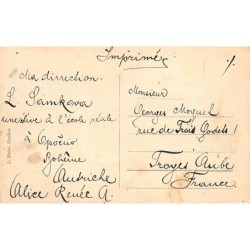 Imprimée
Ma dirrection.
L. Samkova
à l'école réale
à Opočno
Bohême
Autriche
Alice Renée A.
Monsieur
Georges Moquel
rue de Trois Godets 1
Troyes Aube
France